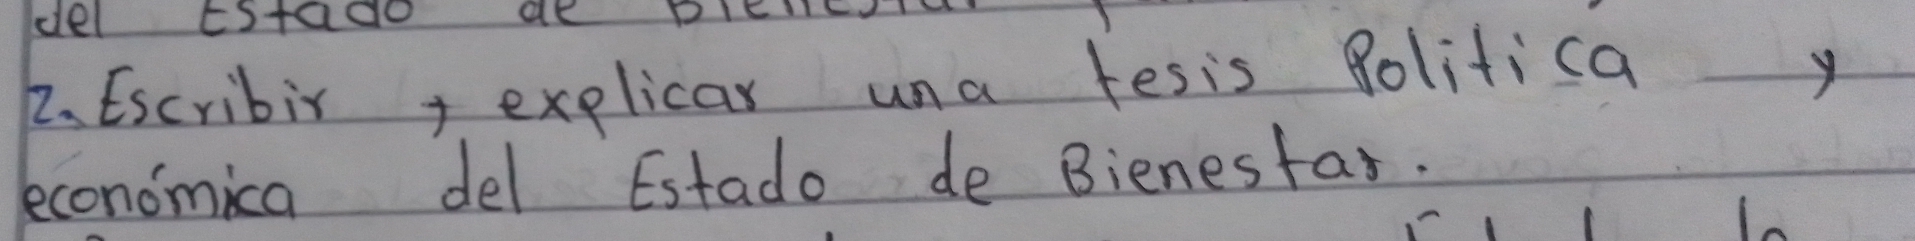 del Estado de Bienestar
2. Escribir y explicar una tesis Política y
económica del Estado de Bienestar.